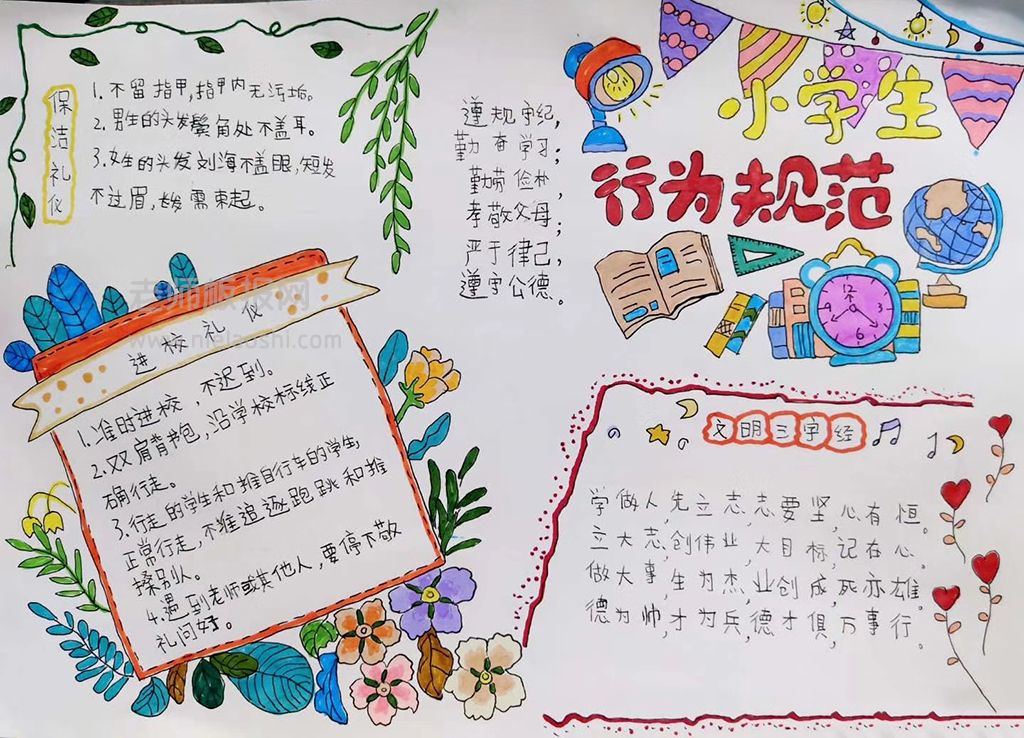 小学生
行为规范
保洁礼仪
1. 不留指甲,指甲内无污垢。
2. 男生的头发鬓角处不盖耳。
3. 女生的头发刘海不盖眼,短发
不过眉,长发需束起。
遵规守纪,
勤奋学习;
勤劳俭朴,
孝敬父母;
严于律己,
遵守公德。
进校礼仪
1. 准时进校,不迟到。
2. 双肩背书包,沿学校标线正
确行走。
3. 行走的学生和推自行车的学生,
正常行走,不准追逐跑跳和推
搡别人。
4. 遇到老师或其他人,要停下敬
礼问好。
文明三字经
学做人,先立志,志要坚,心有恒。
立大志,创伟业,大目标,记在心。
做大事,生为杰,业创成,死亦雄。
德为帅,才为兵,德才俱,万事行。
老师板报网
12
3
6